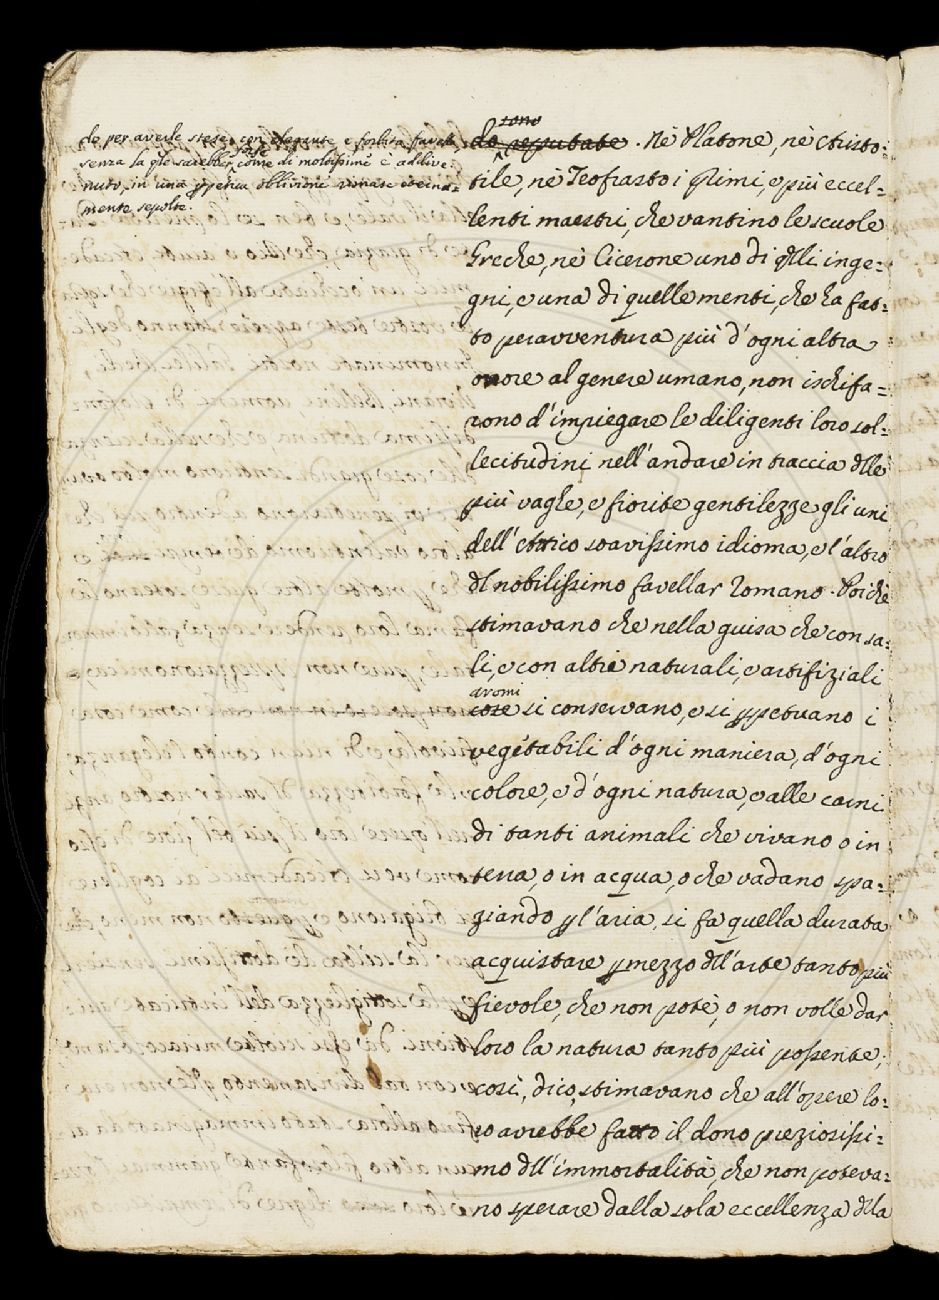 do per averle stese con elegante, e forbita favella
senza la qle sarebber, come di moltissime è addive-
nuto, in una ppetua oblivione rimase eterna-
mente sepolte.
sono
do reputate. Nè Platone, nè Aristo-
tile, nè Teofrasto i primi, e più eccel-
lenti maestri, che vantino le scuole
Greche, nè Cicerone uno di qlli inge-
gni, e una di quelle menti, che ha fat-
to peravventura più d'ogni altra
onore al genere umano, non ischifa-
rono d'impiegare le diligenti loro sol-
lecitudini nell'andare in traccia dlle
più vaghe, e fiorite gentilezze gli uni
dell'Attico soavissimo idioma, e l'altro
dl nobilissimo favellar Romano. Poichè
stimavano che nella guisa che con sa-
li, e con altri naturali, e artifiziali
aromi
cose si conservano, e si ppetuano i
vegetabili d'ogni maniera, d'ogni
colore, e d'ogni natura, e alle carni
di tanti animali che vivano o in
terra, o in acqua, o che vadano spa-
giando p l'aria, si fa quella durata
acquistare p mezzo dll'arte tanto più
fievole, che non potè, o non volle dar
loro la natura tanto più possente;
così, dico, stimavano che all'opere lo-
ro avrebbe fatto il dono preziosissi-
mo dll'immortalità, che non poteva-
no sperare dalla sola eccellenza dlla